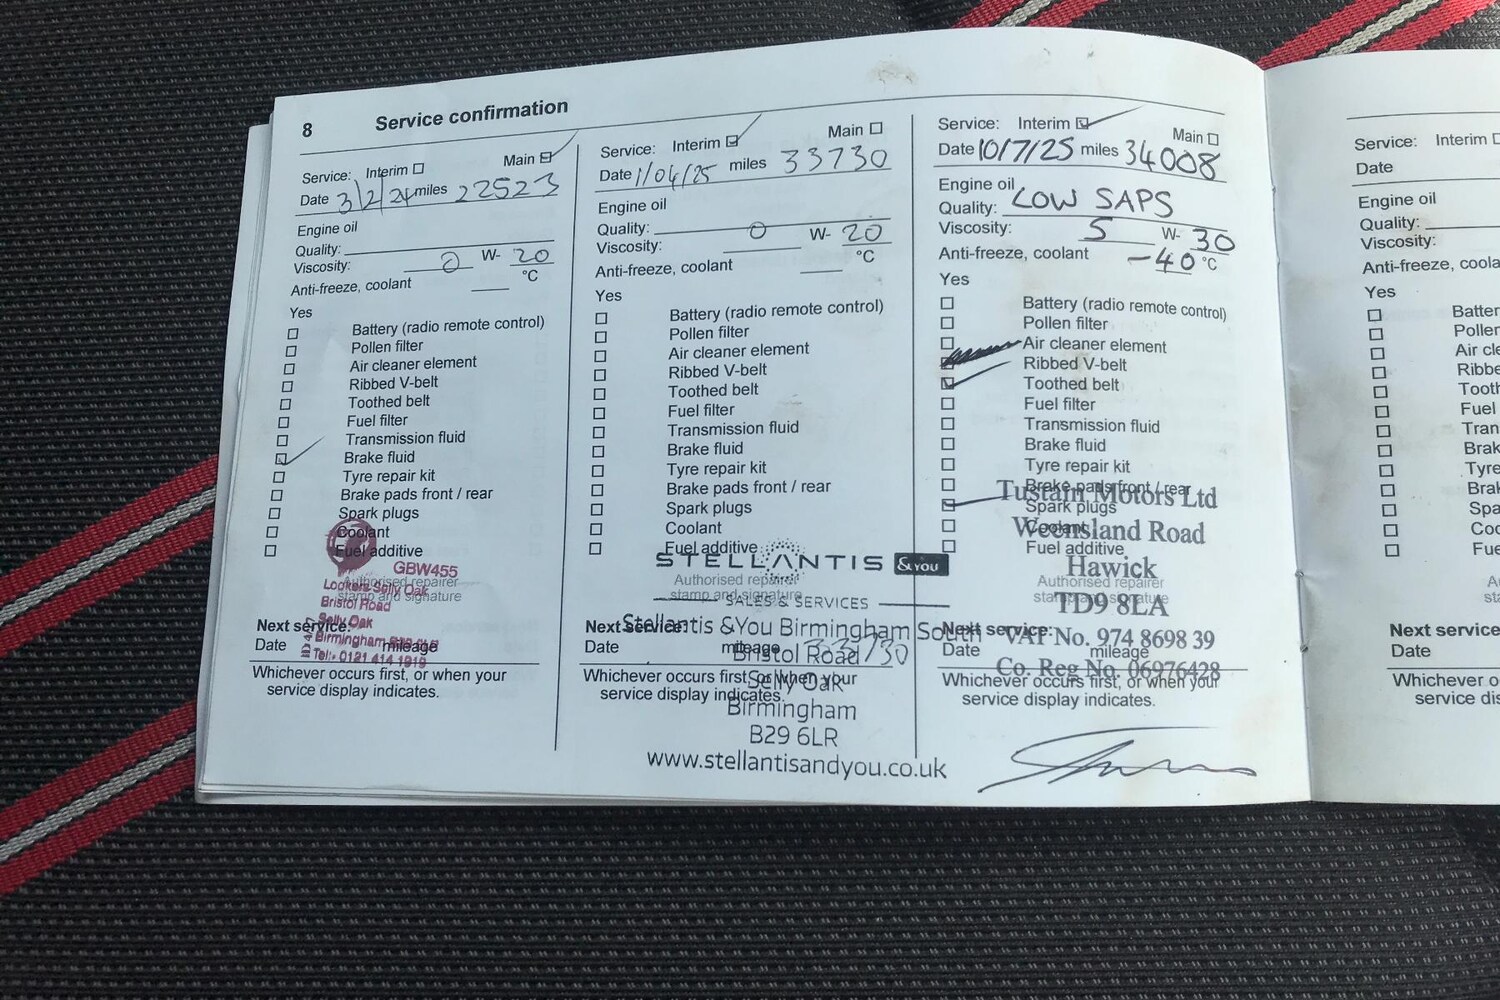 8 Service confirmation
Service: Interim Main
Date 3/2/24 miles 22523
Engine oil
Quality:
Viscosity: 0 W- 20
Anti-freeze, coolant °C
Yes
Battery (radio remote control)
Pollen filter
Air cleaner element
Ribbed V-belt
Toothed belt
Fuel filter
Transmission fluid
Brake fluid
Tyre repair kit
Brake pads front / rear
Spark plugs
Coolant
Fuel additive
GBW455
Authorised repairer
stamp and signature
Lookers Selly Oak
Bristol Road
Selly Oak
Birmingham
Tel:- 0121 414 1919
Next service:
Date mileage
Whichever occurs first, or when your
service display indicates.
Service: Interim Main
Date 1/04/25 miles 33730
Engine oil
Quality:
Viscosity: 0 W- 20
Anti-freeze, coolant °C
Yes
Battery (radio remote control)
Pollen filter
Air cleaner element
Ribbed V-belt
Toothed belt
Fuel filter
Transmission fluid
Brake fluid
Tyre repair kit
Brake pads front / rear
Spark plugs
Coolant
Fuel additive
STELLANTIS &YOU
Authorised repairer
stamp and signature
SALES & SERVICES
Stellantis &You Birmingham South
Next service:
Date mileage
Bristol Road
Selly Oak
Birmingham
B29 6LR
www.stellantisandyou.co.uk
Whichever occurs first, or when your
service display indicates.
Service: Interim Main
Date 10/7/25 miles 34008
Engine oil
Quality: LOW SAPS
Viscosity: 5 W- 30
Anti-freeze, coolant -40 °C
Yes
Battery (radio remote control)
Pollen filter
Air cleaner element
Ribbed V-belt
Toothed belt
Fuel filter
Transmission fluid
Brake fluid
Tyre repair kit
Brake pads front / rear
Spark plugs
Coolant
Fuel additive
Tustain Motors Ltd
Weensland Road
Hawick
TD9 8LA
VAT No. 974 8698 39
Co. Reg No. 06976428
Authorised repairer
Next service:
Date mileage
Whichever occurs first, or when your
service display indicates.
Service: Interim
Date
Engine oil
Quality:
Viscosity:
Anti-freeze,
Yes
Next service
Date
Whichever
service